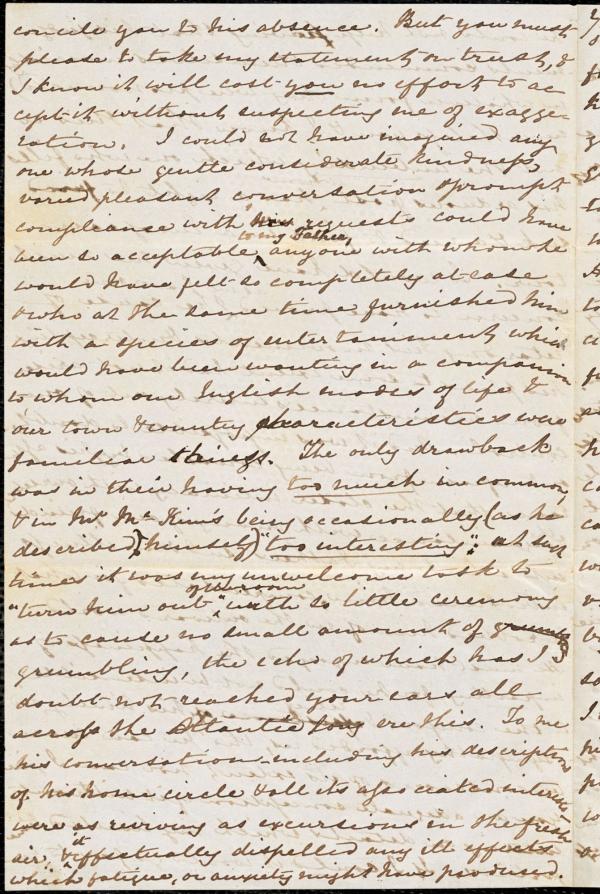 concile you to his absence. But you must
please to take my statement on trust, &
I know it will cost you no effort to ac
cept it without suspecting me of exagge-
ration. I could not have imagined any
one whose gentle considerate kindness,
varied pleasant conversation & prompt
compliance with requests could have
to my Father,
been so acceptable, anyone with whom he
would have felt so completely at ease
& who at the same time furnished him
with a species of entertainment which
would have been wanting in a companion
to whom our English modes of life &
our town & country characteristics were
familiar things. The only drawback
was in their having too much in common,
& in Mr. McKim's being occasionally (as he
described himself) "too interesting": at such
times it was my unwelcome task to
"turn him out" with so little ceremony
as to cause no small amount of
grumbling, the echo of which has I
doubt not reached your ears all
across the Atlantic long ere this. To me
his conversation including his description
of his home circle & all its associated interests
were as reviving as excursions in the fresh
air, & it effectually dispelled any ill effects
which fatigue, or anxiety might have produced.